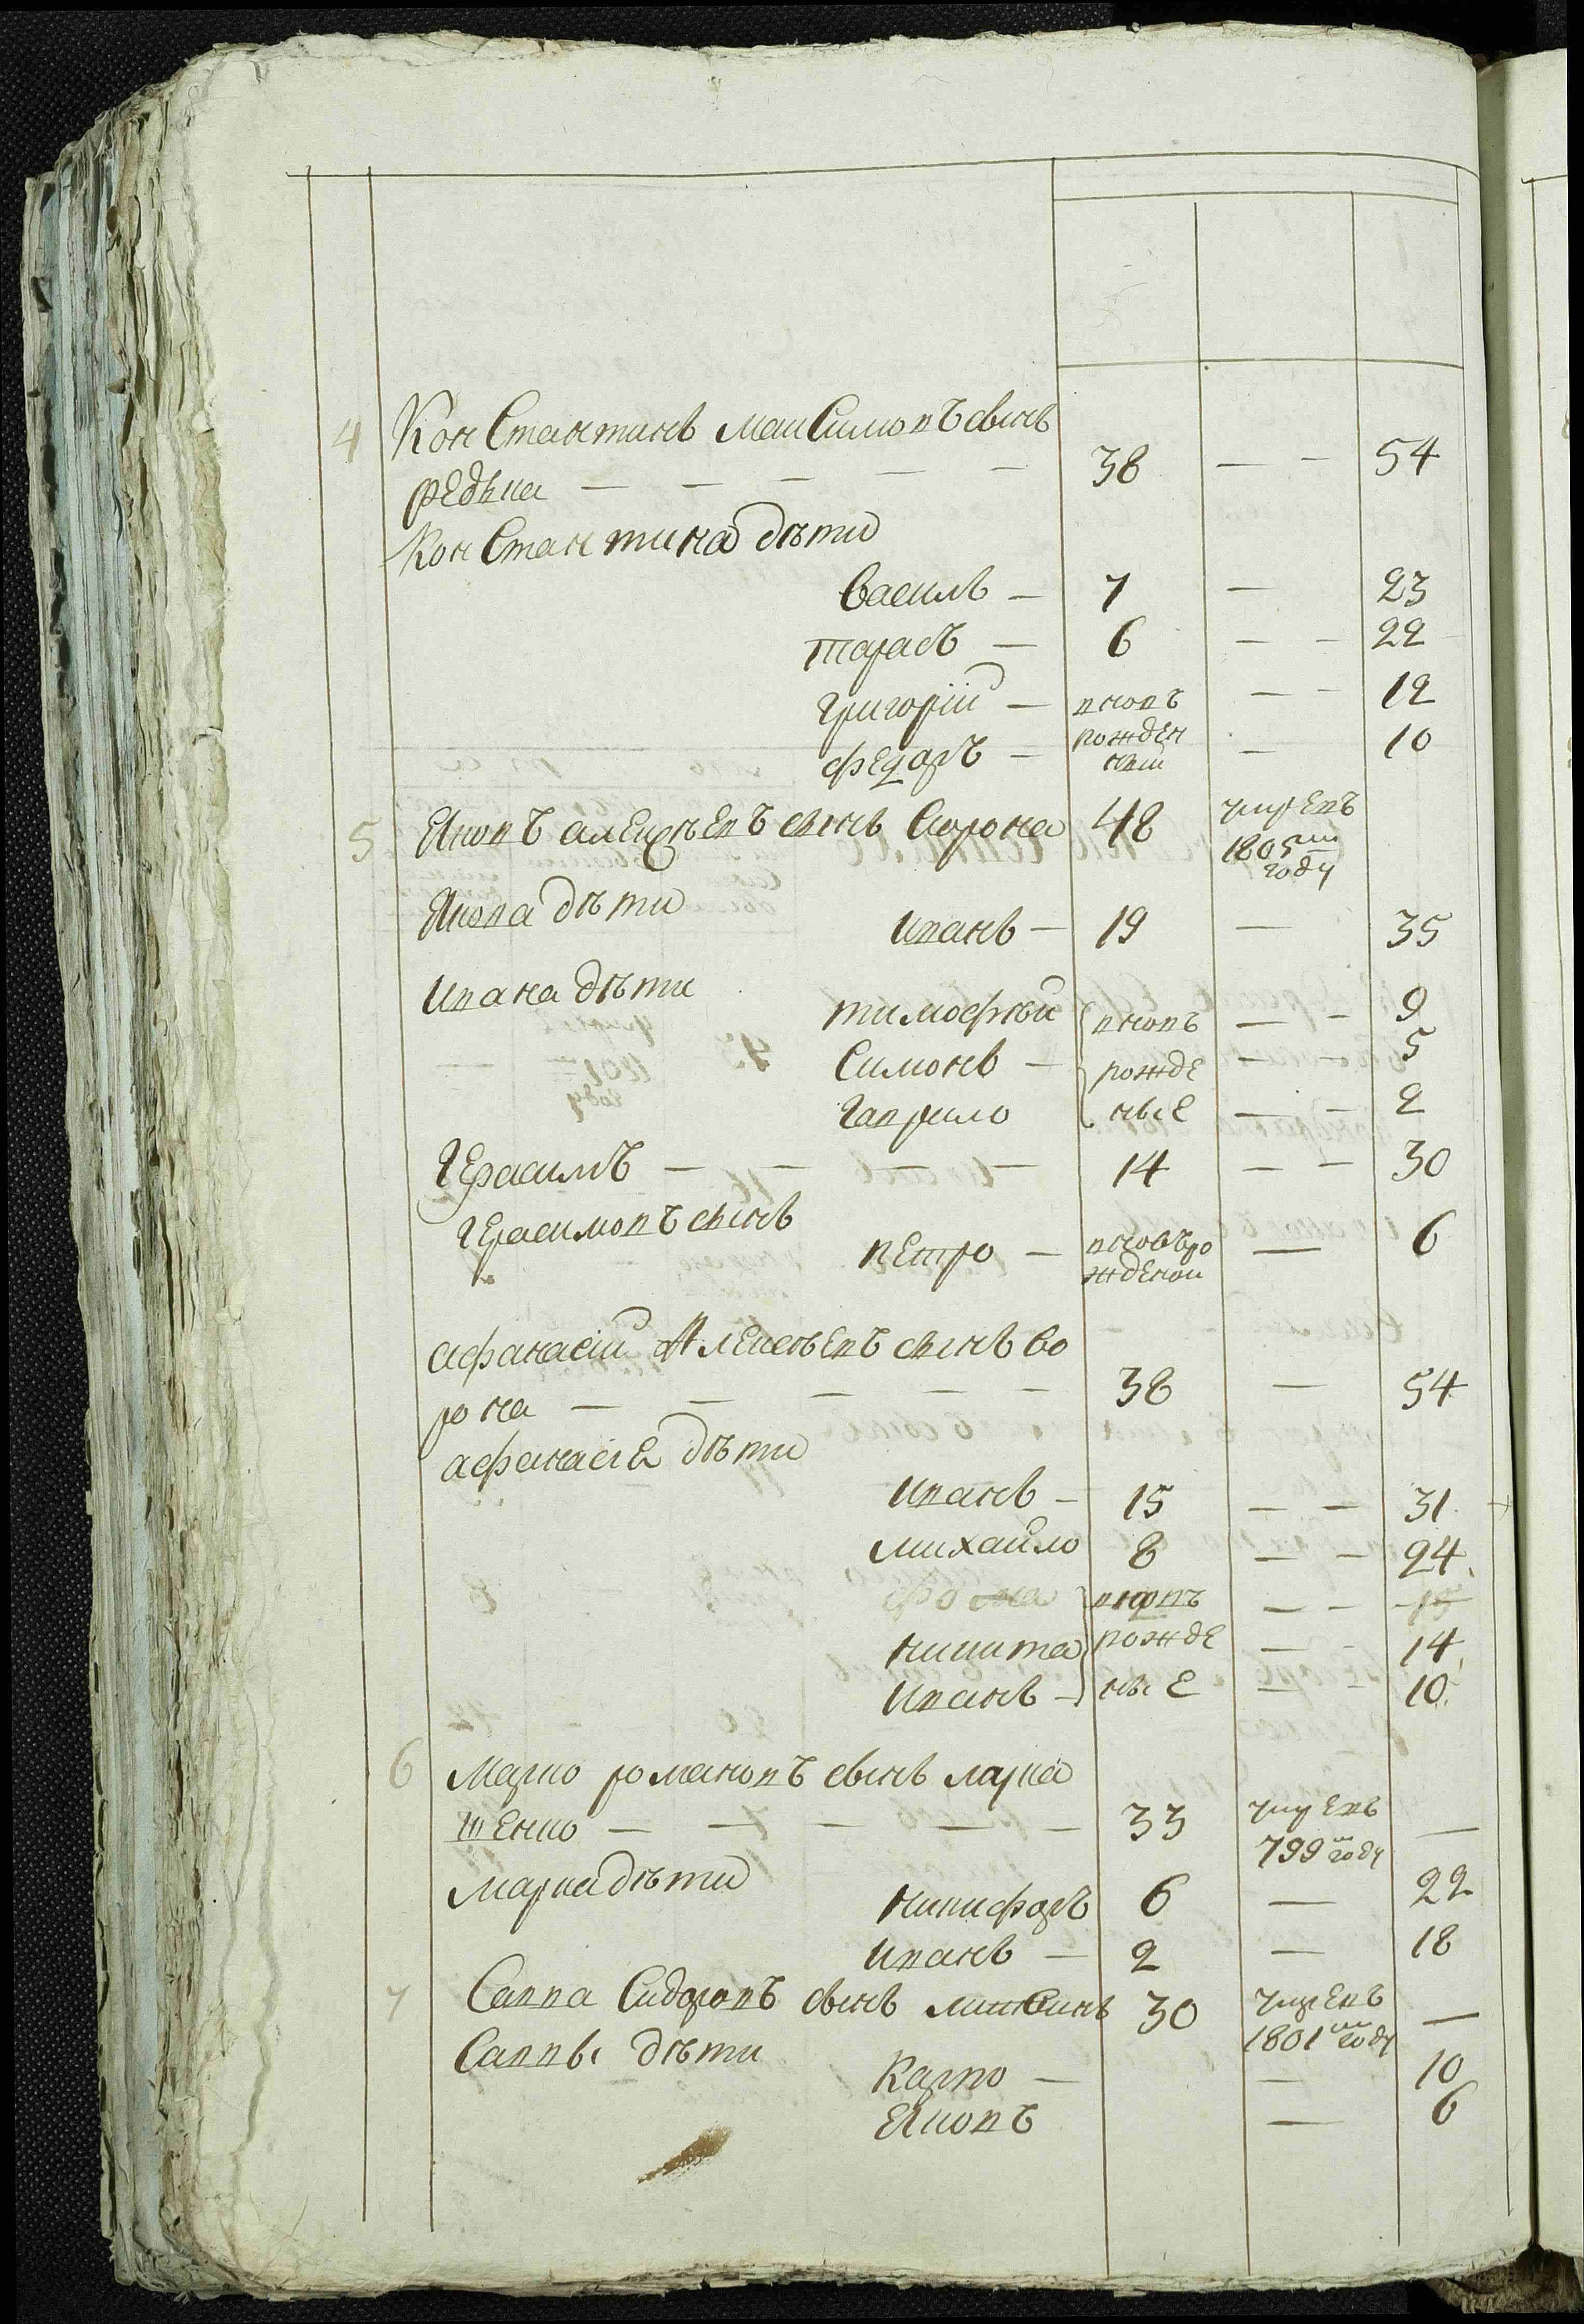 4 Константинъ Максимовъ сынъ
редька — — — — — 38 — — 54
Константина дѣти
Василь — 7 — 23
тарасъ — 6 — — 22
Григорій — вновь — — 12
федоръ — рожден ные — 10
5 Яковъ алексѣевъ сынъ Сорока 48 умревъ 1805 мъ году
Якова дѣти
Иванъ — 19 — 35
Ивана дѣти
тимофѣй вновь — — 9
Симонъ — рожде — — 5
Гаврило ные — — 2
Герасимъ — — — — 14 — — 30
Герасимовъ сынъ
петро — вновъро жденой — 6
афанасій Алексѣевъ сынъ со
рока — — — — — 38 — 54
афанасіа дѣти
Иванъ — 15 — — 31
михайло 8 — — 24
фома вновъ — — 15
никита рожде — — 14
Иванъ — ные — — 10
6 Марко романовъ сынъ марка
щенко — — — — — 33 умревъ 799 м году —
Марка дѣти
никифоръ 6 — 22
Иванъ — 2 — 18
7 Савва Сидоровъ сынъ 30 умревъ 1801 м году —
Саввы дѣти
Карпо — — 10
Яковъ — 6